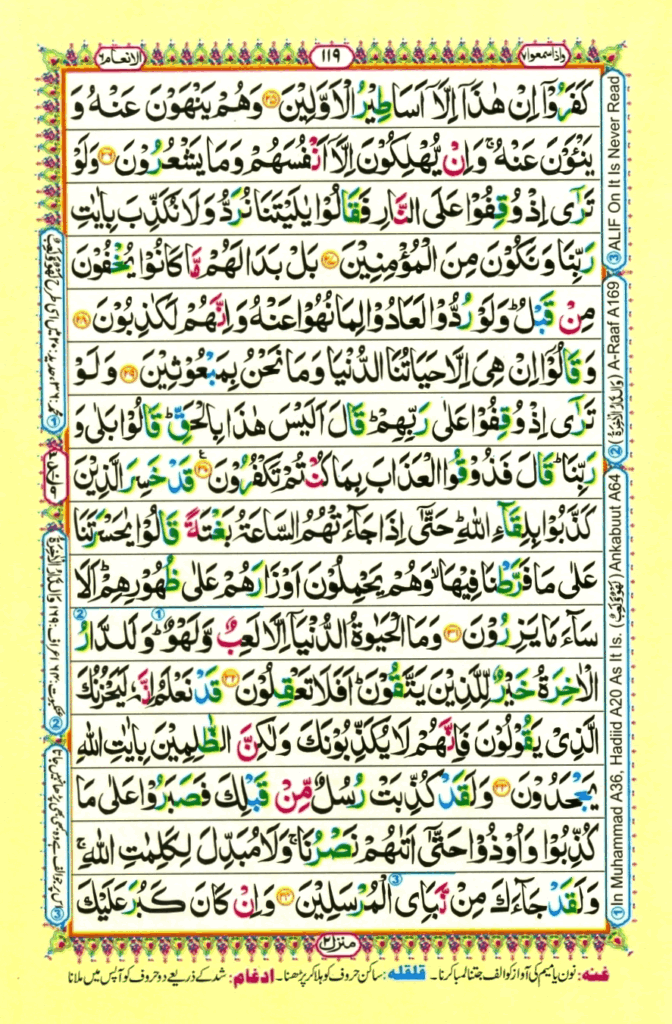 واذاسمعوا۷
۱۱۹
الانعام۶
كَفَرُوْۤا اِنْ هٰذَاۤ اِلَّاۤ اَسَاطِيْرُ الْاَوَّلِيْنَ ﴿۲۵﴾ وَهُمْ يَنْهَوْنَ عَنْهُ وَ
يَنْــَٔوْنَ عَنْهُ ۚ وَاِنْ يُّهْلِكُوْنَ اِلَّاۤ اَنْفُسَهُمْ وَمَا يَشْعُرُوْنَ ﴿۲۶﴾ وَلَوْ
تَرٰۤى اِذْ وُقِفُوْا عَلَى النَّارِ فَقَالُوْا يٰلَيْتَنَا نُرَدُّ وَلَا نُكَذِّبَ بِاٰيٰتِ
رَبِّنَا وَنَكُوْنَ مِنَ الْمُؤْمِنِيْنَ ﴿۲۷﴾ بَلْ بَدَا لَهُمْ مَّا كَانُوْا يُخْفُوْنَ
مِنْ قَبْلُ ؕ وَلَوْ رُدُّوْا لَعَادُوْا لِمَا نُهُوْا عَنْهُ وَاِنَّهُمْ لَكٰذِبُوْنَ ﴿۲۸﴾
وَقَالُوْۤا اِنْ هِىَ اِلَّا حَيَاتُنَا الدُّنْيَا وَمَا نَحْنُ بِمَبْعُوْثِيْنَ ﴿۲۹﴾ وَلَوْ
تَرٰۤى اِذْ وُقِفُوْا عَلٰى رَبِّهِمْ ؕ قَالَ اَلَيْسَ هٰذَا بِالْحَقِّ ؕ قَالُوْا بَلٰى وَ
رَبِّنَا ؕ قَالَ فَذُوْقُوا الْعَذَابَ بِمَا كُنْتُمْ تَكْفُرُوْنَ ﴿۳۰﴾ ع قَدْ خَسِرَ الَّذِيْنَ
كَذَّبُوْا بِلِقَآءِ اللّٰهِ ؕ حَتّٰۤى اِذَا جَآءَتْهُمُ السَّاعَةُ بَغْتَةً قَالُوْا يٰحَسْرَتَنَا
عَلٰى مَا فَرَّطْنَا فِيْهَا ۙ وَهُمْ يَحْمِلُوْنَ اَوْزَارَهُمْ عَلٰى ظُهُوْرِهِمْ ؕ اَلَا
سَآءَ مَا يَزِرُوْنَ ﴿۳۱﴾ وَمَا الْحَيٰوةُ الدُّنْيَاۤ اِلَّا لَعِبٌ وَّلَهْوٌ ؕ وَلَلدَّارُ
الْاٰخِرَةُ خَيْرٌ لِّلَّذِيْنَ يَتَّقُوْنَ ؕ اَفَلَا تَعْقِلُوْنَ ﴿۳۲﴾ قَدْ نَعْلَمُ اِنَّهٗ لَيَحْزُنُكَ
الَّذِىْ يَقُوْلُوْنَ فَاِنَّهُمْ لَا يُكَذِّبُوْنَكَ وَلٰكِنَّ الظّٰلِمِيْنَ بِاٰيٰتِ اللّٰهِ
يَجْحَدُوْنَ ﴿۳۳﴾ وَلَقَدْ كُذِّبَتْ رُسُلٌ مِّنْ قَبْلِكَ فَصَبَرُوْا عَلٰى مَا
كُذِّبُوْا وَاُوْذُوْا حَتّٰۤى اَتٰىهُمْ نَصْرُنَا ۚ وَلَا مُبَدِّلَ لِكَلِمٰتِ اللّٰهِ ۚ
وَلَقَدْ جَآءَكَ مِنْ نَّبَاِى الْمُرْسَلِيْنَ ﴿۳۴﴾ وَاِنْ كَانَ كَبُرَ عَلَيْكَ
③ALIF On It Is Never Read
②(وَالدَّارُ الْاٰخِرَةُ) A-Raaf A169
①In Muhammad A36, Hadiid A20 As It Is. (لَهْوٌ وَّلَعِبٌ) Ankabuut A64
منزل۲
غنه: نون یا میم کی آواز کو الف جتنا لمبا کرنا۔ قلقله: ساکن حروف کو ہلا کر پڑھنا۔ ادغام: شد کے ذریعے دو حروف کو آپس میں ملانا